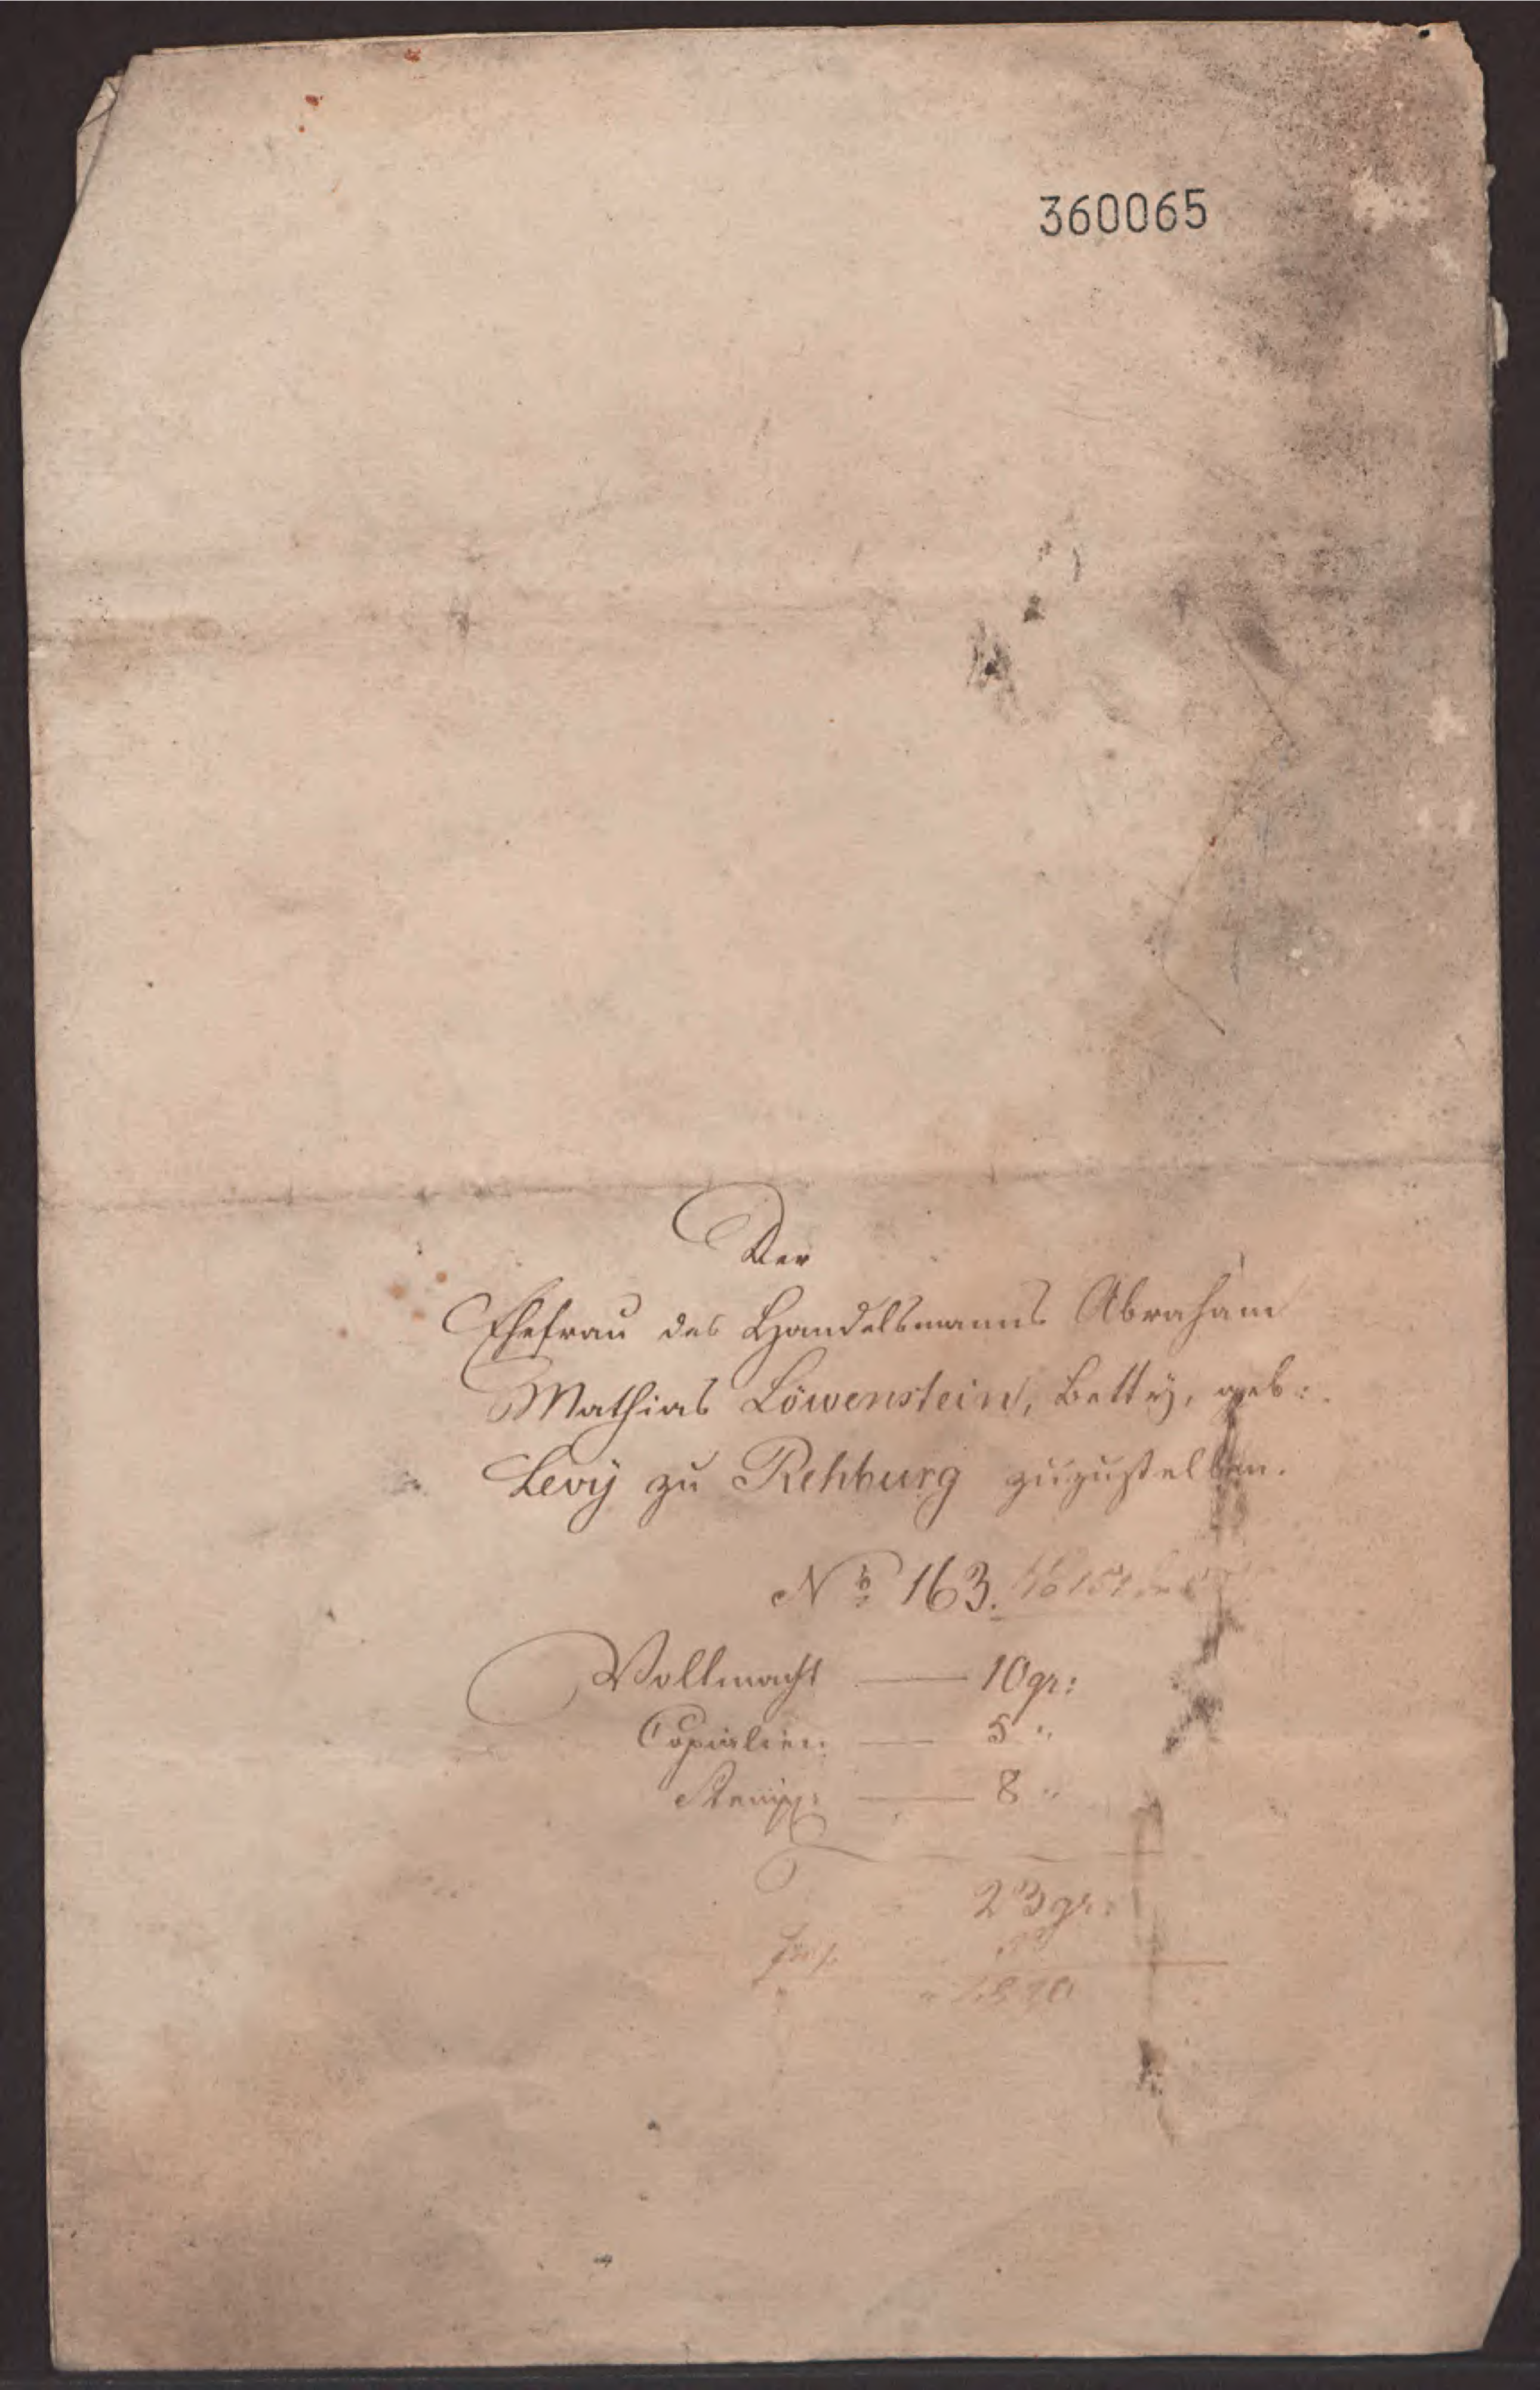 360065
Der
Ehefrau des Handelsmanns Abraham
Mathias Löwenstein, Betty, geb:
Levÿ zu Rehburg zuzustellen.
No 163.
Vollmacht — 10 gr:
Copialien — 5 "
Stemp: — 8 "
23 gr: